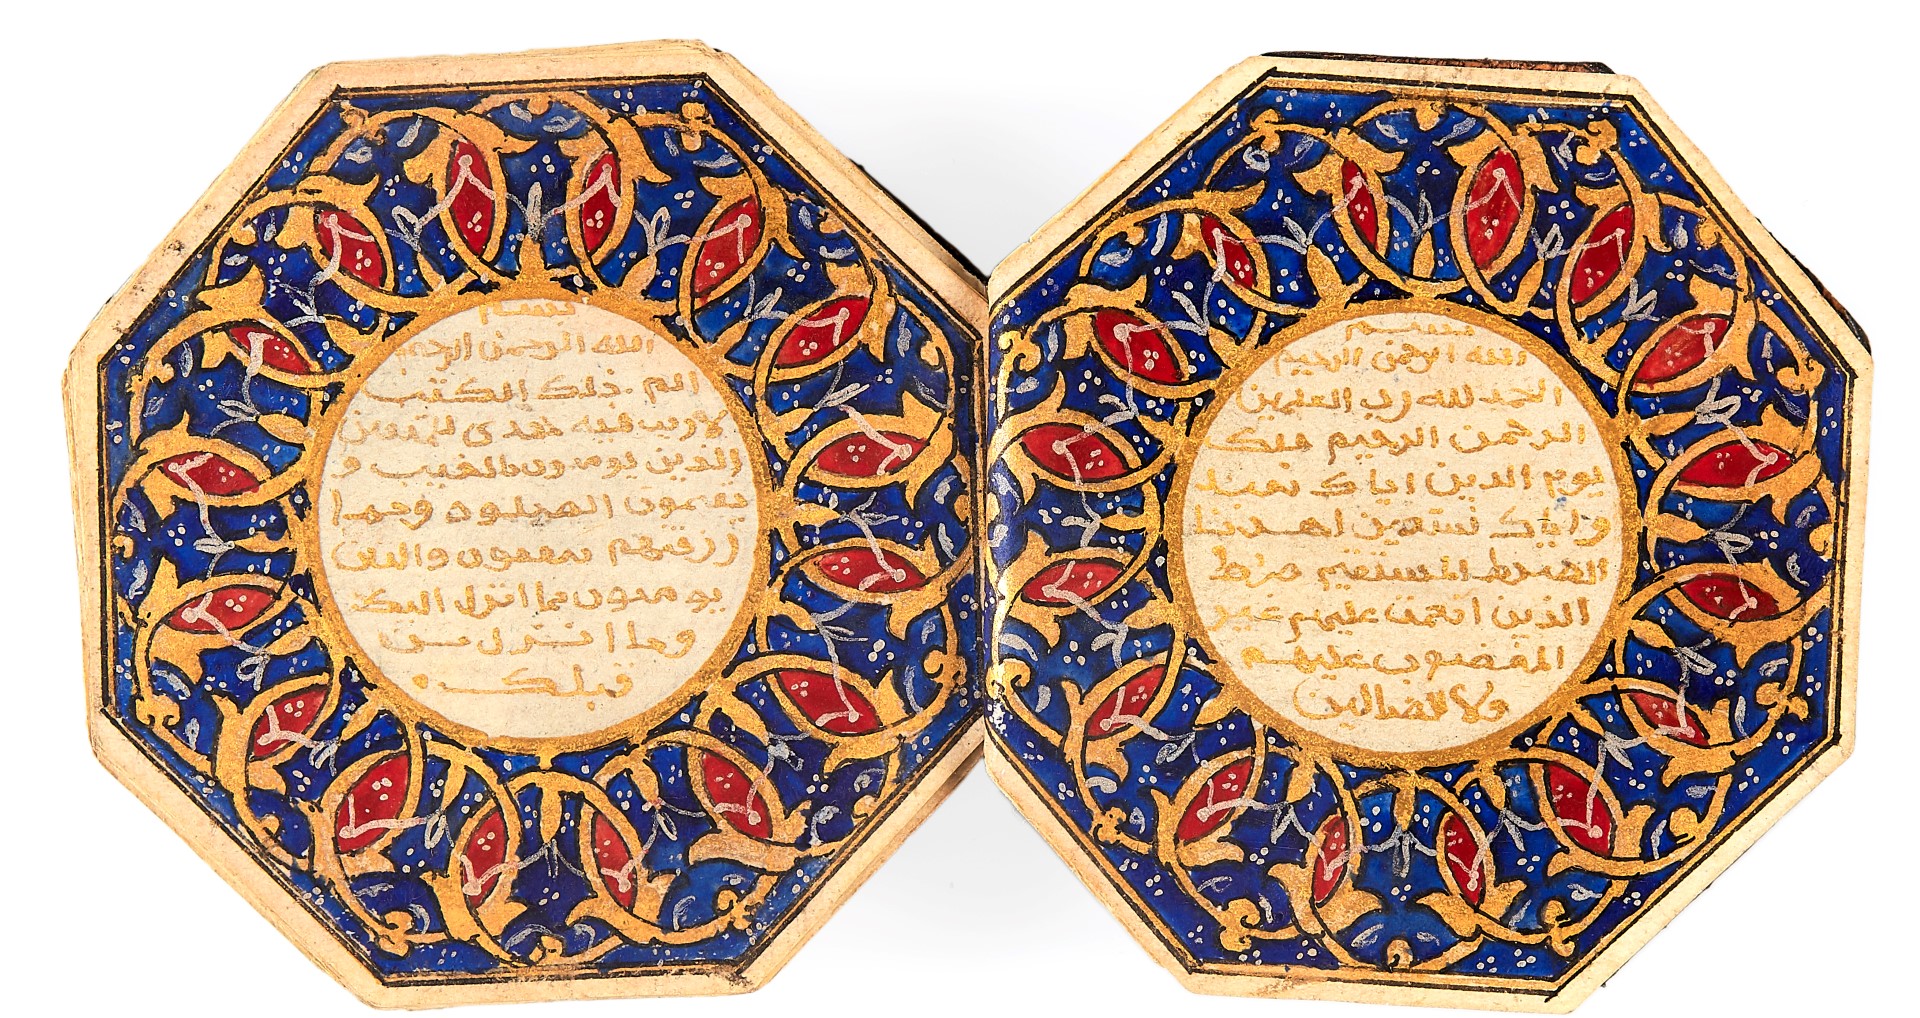 بسم
الله الرحمن الرحيم
الحمد لله رب العلمين
الرحمن الرحيم ملك
يوم الدين اياك نعبد
واياك نستعين اهدنا
الصرط المستقيم صرط
الذين انعمت عليهم غير
المغضوب عليهم
ولا الضالين
بسم
الله الرحمن الرحيم
الم ذلك الكتب
لا ريب فيه هدى للمتقين
الذين يومنون بالغيب و
يقيمون الصلوة ومما
رزقنهم ينفقون والذين
يومنون بما انزل اليك
وما انزل من
قبلك